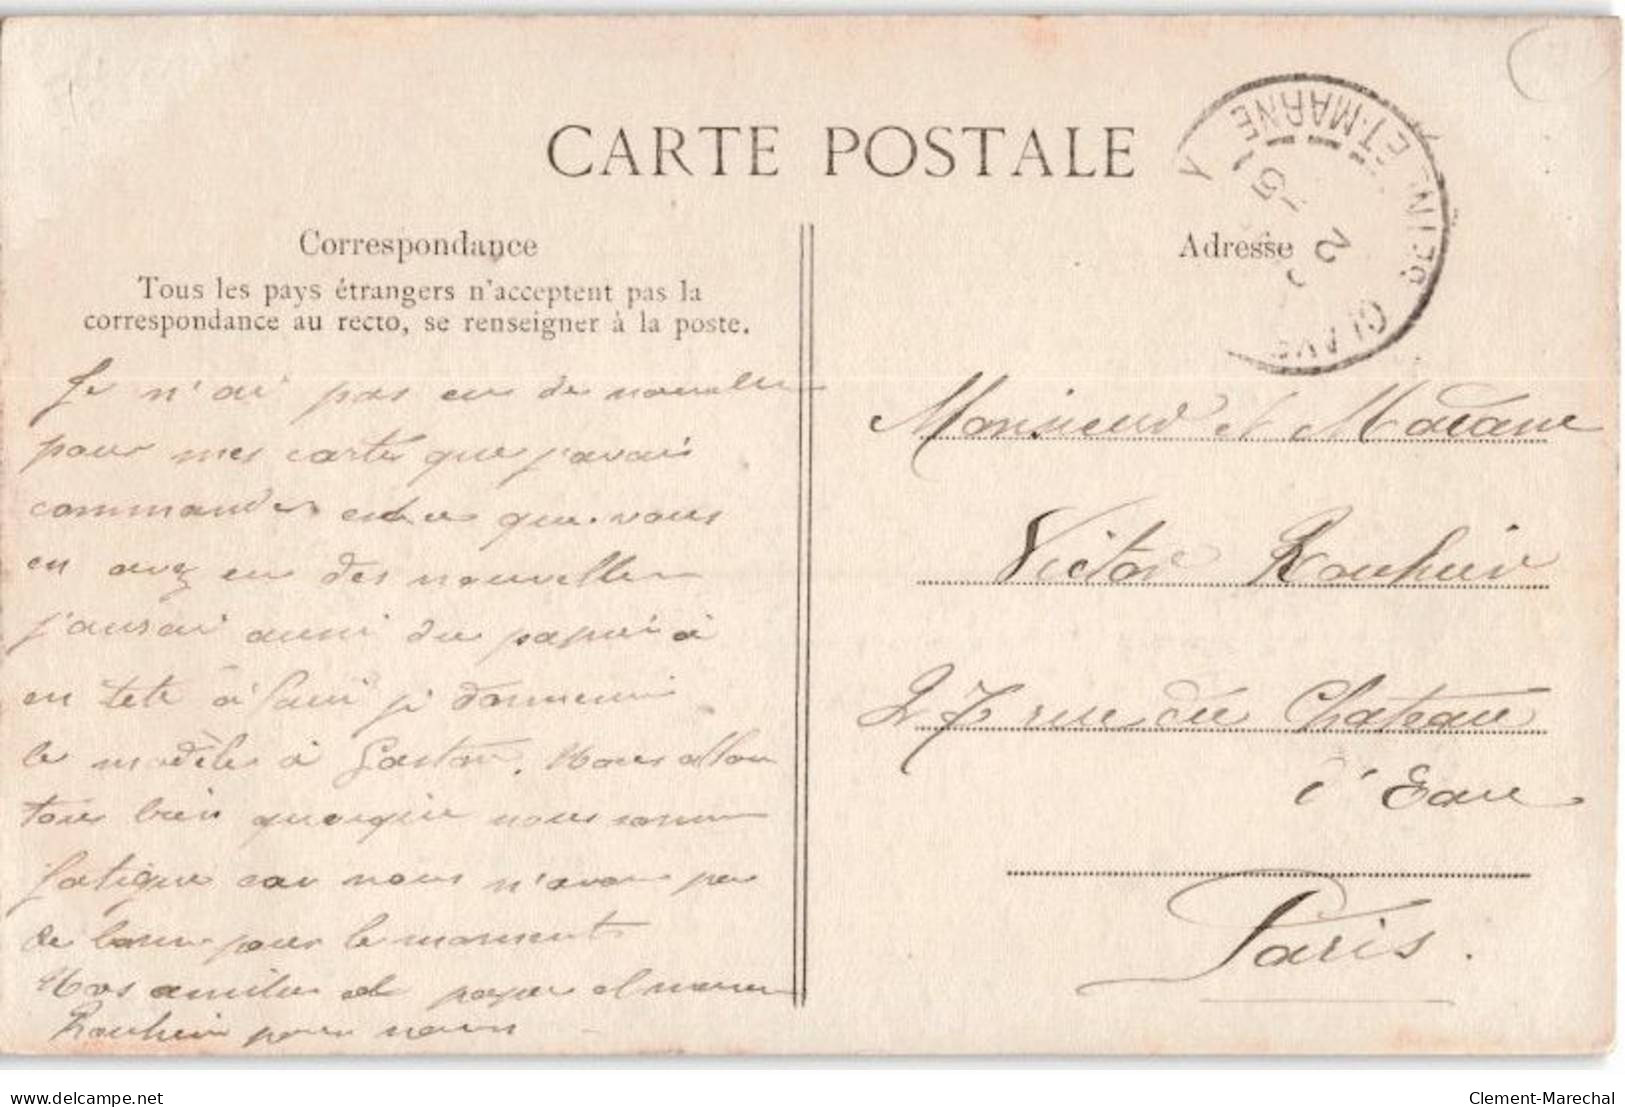 CARTE POSTALE
Correspondance
Tous les pays étrangers n'acceptent pas la
correspondance au recto, se renseigner à la poste.
Je n'ai pas eu de nouvelles
pour mes cartes que j'avais
commandes que vous
en avez eu des nouvelles
j'aurai aussi du papier à
en tete à faire je
le modèle à Gaston. Nous allons
tous bien quoique nous sommes
fatigue car nous n'avons pas
de bonne pour le moment
Nos amities a papa et maman
Rouhier pour nous
Adresse
ET-MARNE
Monsieur et Madame
Victor Rouhier
27 rue du Chateau
d'Eau
Paris.
delcampe.net
Clement-Marechal